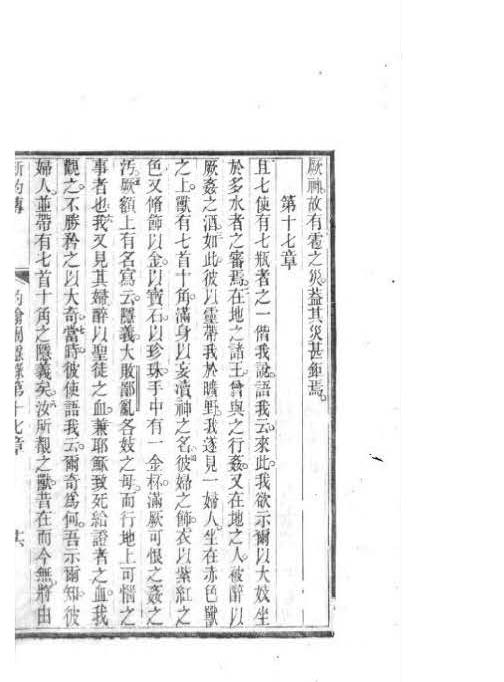 厥神。故有雹之災。葢其災甚鉅焉。
第十七章
且七使有七瓶者之一偕我說語我云。來此。我欲示爾以大妓坐
於多水者之審焉。在地之諸王曾與之行姦。又在地之人。被醉以
厥姦之酒。如此彼以靈帶我於曠野。我遂見一婦人。坐在赤色獸
之上。獸有七首十角。滿身以妄凟神之名。彼婦之飾。衣以紫紅之
色又脩飾以金。以寶石以珍珠手中有一金杯。滿厥可恨之姦之
汚。厥額上有名寫云。隱義大敗鄙亂各妓之母。而行地上可憎之
事者也。我又見其婦醉以聖徒之血。兼耶穌致死給證者之血。我
觀之。不勝矜之以大奇。當時彼使語我云。爾奇爲何。吾示爾知。彼
婦人並帶有七首十角之隱義矣。汝所覩之獸。昔在而今無。將由
新約傳
第十七章